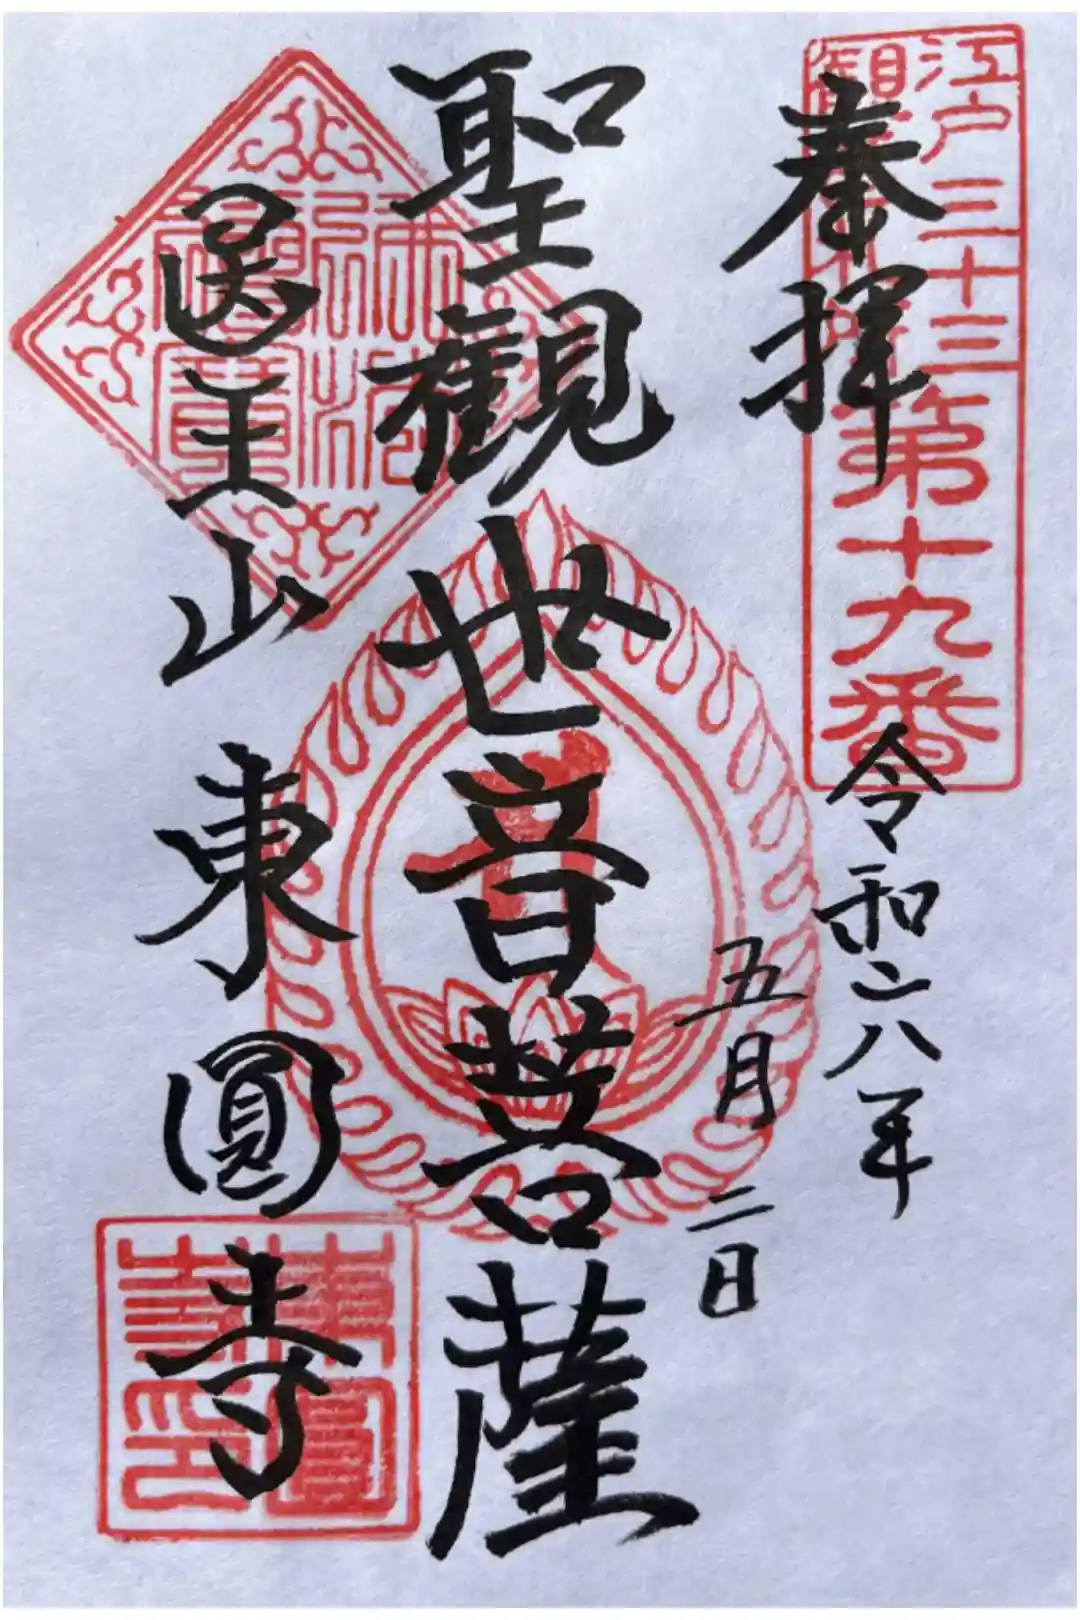 奉拝
江戸三十三
観音札所
第十九番
令和六年
五月二日
聖観世音菩薩
医王山 東圓寺
東圓寺印